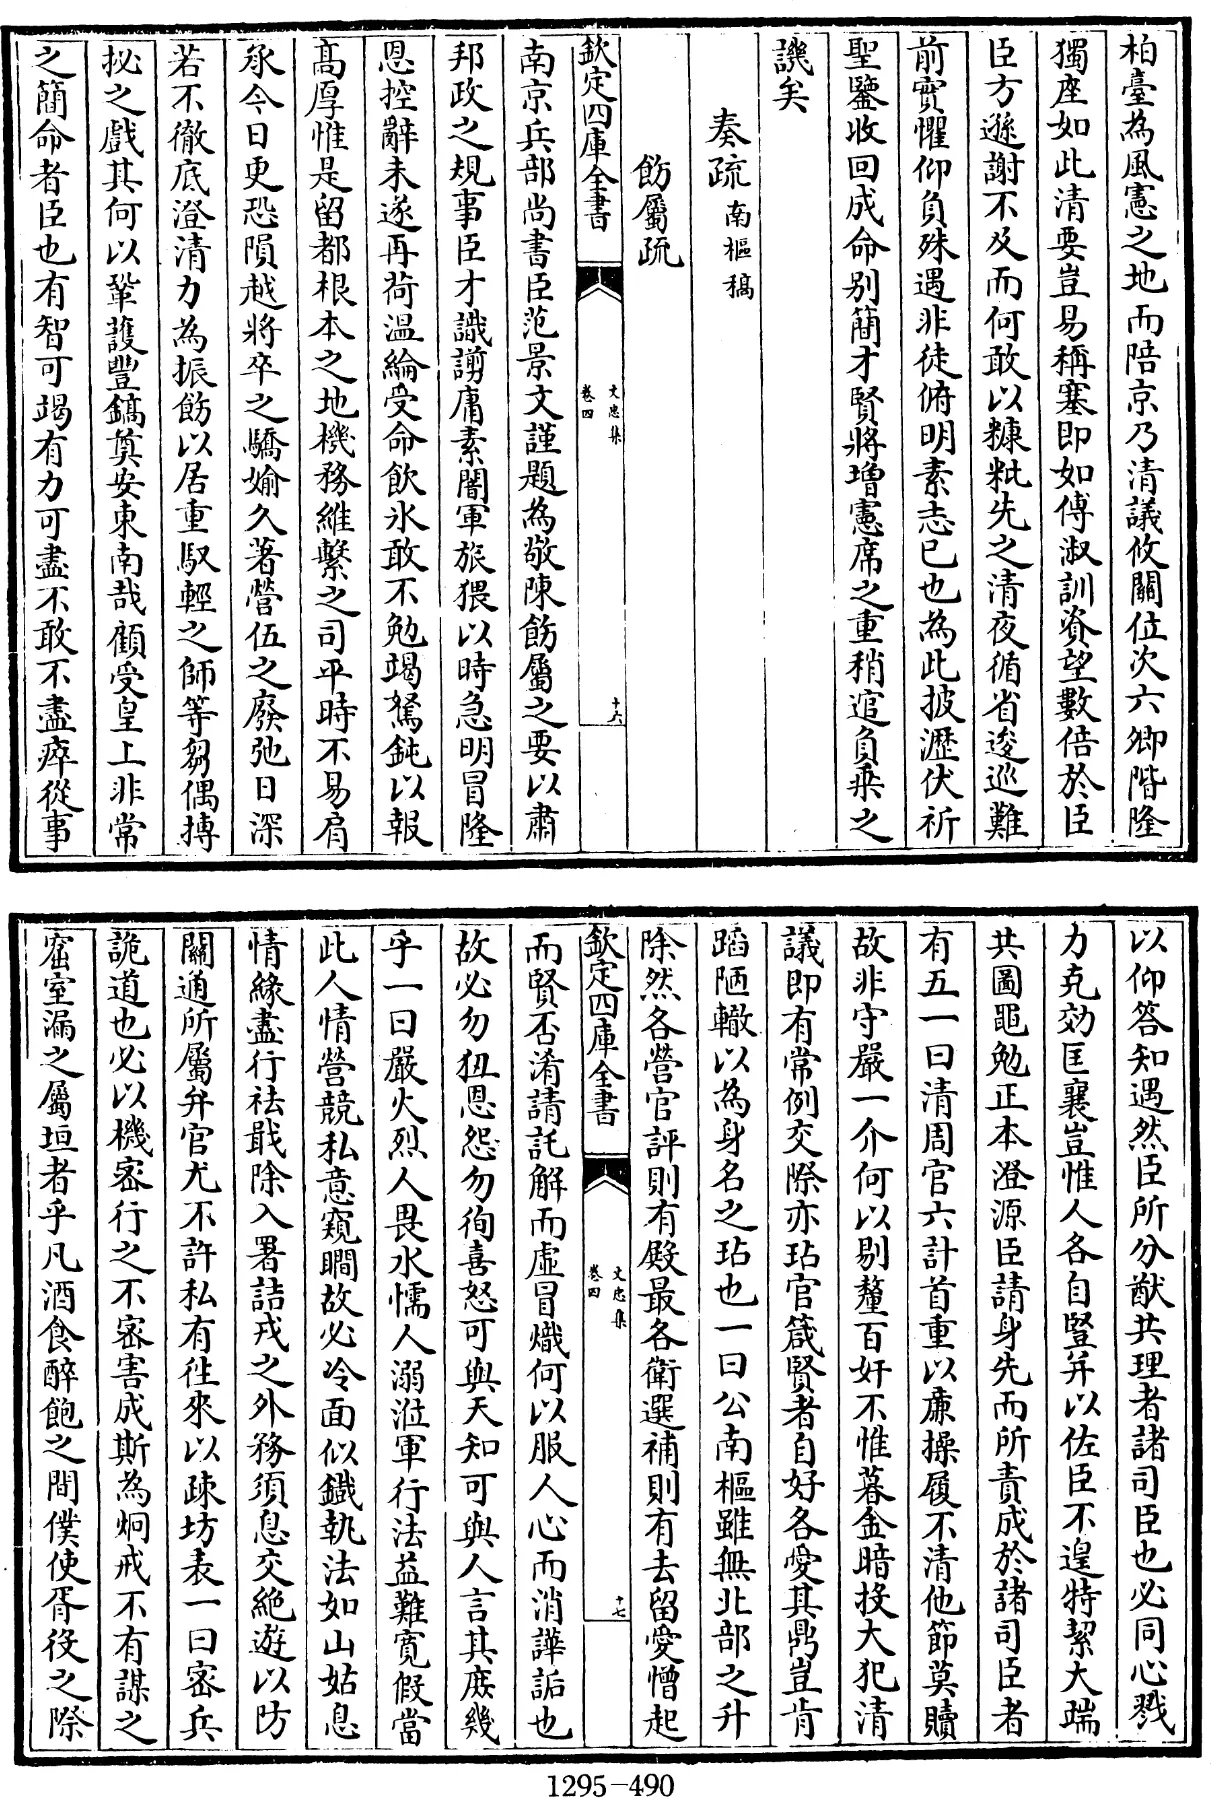 柏臺為風憲之地而陪京乃清議攸關位次六卿階隆
獨座如此清要豈易稱塞即如傅淑訓資望數倍於臣
臣方遜謝不及而何敢以糠粃先之清夜循省逡巡難
前實懼仰負殊遇非徒俯明素志已也為此披瀝伏祈
聖鑒收回成命别簡才賢將增憲席之重稍逭負乗之
譏矣
奏疏南樞稿
飭屬疏
欽定四庫全書
文忠集
卷四
十六
南京兵部尚書臣范景文謹題為敬陳飭屬之要以肅
邦政之規事臣才識謭庸素闇軍旅猥以時急明冒隆
恩控辭未遂再荷温綸受命飲氷敢不勉竭駑鈍以報
髙厚惟是留都根本之地機務維繫之司平時不易肩
承今日更恐隕越將卒之驕婾久著營伍之廢弛日深
若不徹底澄清力為振飭以居重馭輕之師等芻偶摶
挍之戲其何以鞏護豐鎬奠安東南哉顧受皇上非常
之簡命者臣也有智可竭有力可盡不敢不盡瘁從事
以仰答知遇然臣所分猷共理者諸司臣也必同心戮
力克効匡襄豈惟人各自豎并以佐臣不遑特絜大端
共圖黽勉正本澄源臣請身先而所責成於諸司臣者
有五一曰清周官六計首重以亷操履不清他節莫贖
故非守嚴一介何以剔釐百奸不惟暮金暗投大犯清
議即有常例交際亦玷官箴賢者自好各愛其鼎豈肯
蹈陋轍以為身名之玷也一曰公南樞雖無北部之升
除然各營官評則有殿最各衛選補則有去留愛憎起
欽定四庫全書
文忠集
卷四
十七
而賢否淆請託觧而虚冒熾何以服人心而消譁詬也
故必勿狃恩怨勿徇喜怒可與天知可與人言其庶幾
乎一曰嚴火烈人畏水懦人溺涖軍行法益難寛假當
此人情營競私意窺瞷故必冷面似鐵執法如山姑息
情緣盡行祛戢除入署詰戎之外務須息交絶遊以昉
關通所屬弁官尤不許私有徃來以疎坊表一曰宻兵
詭道也必以機宻行之不宻害成斯為炯戒不有謀之
窟室漏之屬垣者乎凡酒食醉飽之間僕使胥役之際
1295-490